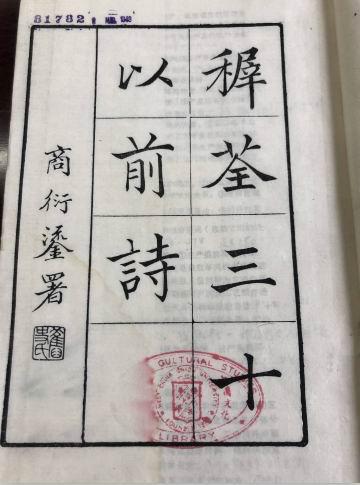 81782
稺荃三十
以前詩
商衍鎏署
CULTURAL STUDIES
LIBRARY